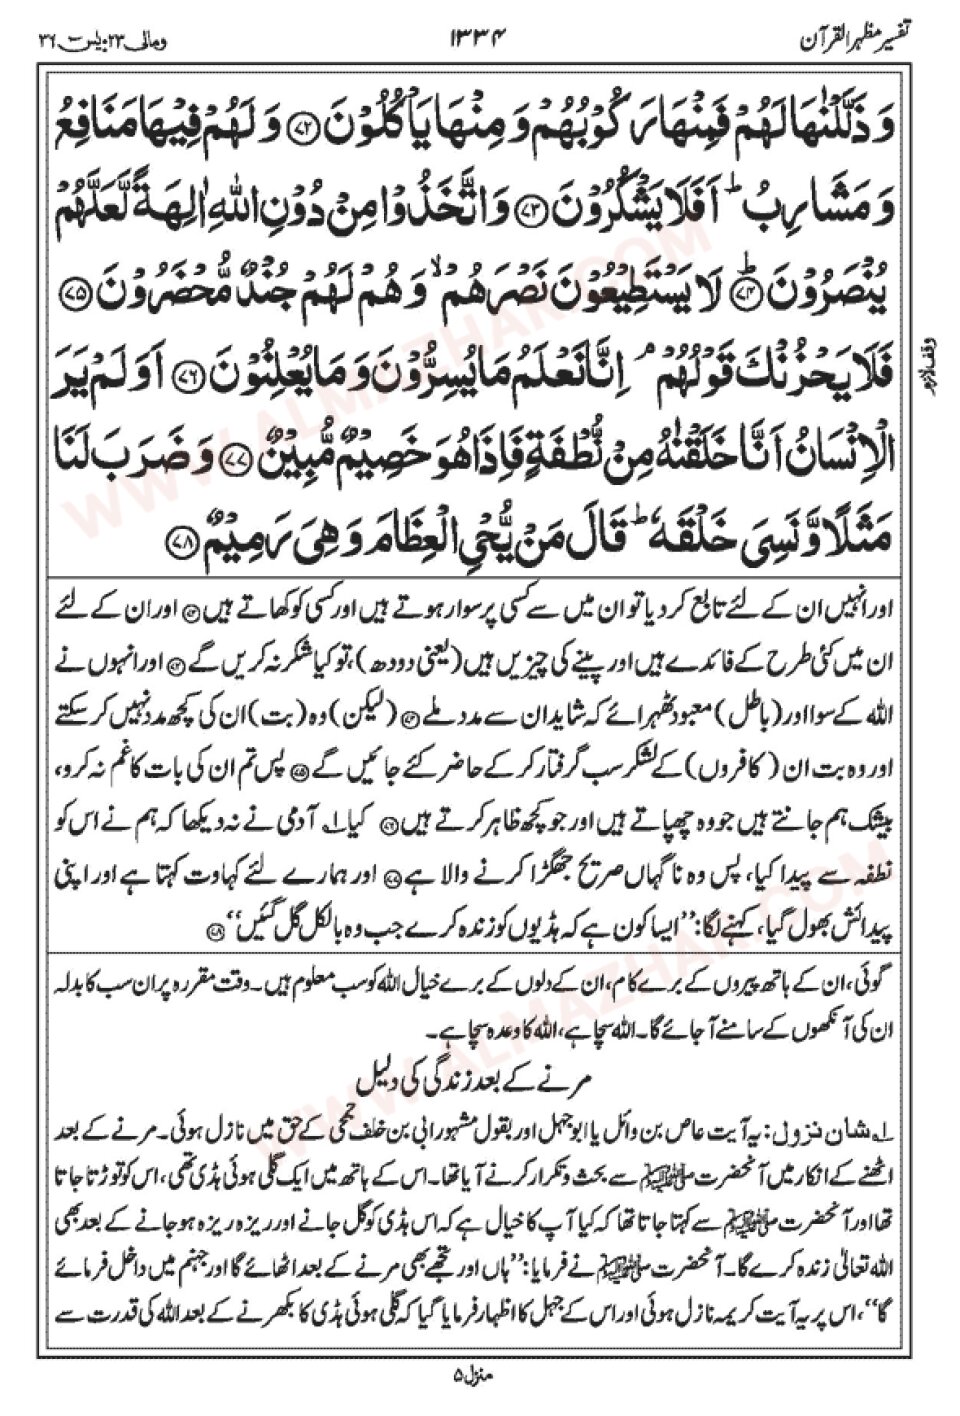 تفسیر مظہر القرآن ۱۳۳۴ ومالی ۲۳: یٰسٓ ۳۶
وَ ذَلَّلْنٰهَا لَهُمْ فَمِنْهَا رَكُوْبُهُمْ وَ مِنْهَا يَاْكُلُوْنَ ﴿۷۲﴾ وَ لَهُمْ فِيْهَا مَنَافِعُ
وَ مَشَارِبُ ؕ اَفَلَا يَشْكُرُوْنَ ﴿۷۳﴾ وَ اتَّخَذُوْا مِنْ دُوْنِ اللّٰهِ اٰلِهَةً لَّعَلَّهُمْ
يُنْصَرُوْنَ ؕ﴿۷۴﴾ لَا يَسْتَطِيْعُوْنَ نَصْرَهُمْ ۙ وَ هُمْ لَهُمْ جُنْدٌ مُّحْضَرُوْنَ ﴿۷۵﴾
فَلَا يَحْزُنْكَ قَوْلُهُمْ ۘ اِنَّا نَعْلَمُ مَا يُسِرُّوْنَ وَ مَا يُعْلِنُوْنَ ﴿۷۶﴾ اَوَ لَمْ يَرَ
وقف لازم
الْاِنْسَانُ اَنَّا خَلَقْنٰهُ مِنْ نُّطْفَةٍ فَاِذَا هُوَ خَصِيْمٌ مُّبِيْنٌ ﴿۷۷﴾ وَ ضَرَبَ لَنَا
مَثَلًا وَّ نَسِيَ خَلْقَهٗ ؕ قَالَ مَنْ يُّحْيِ الْعِظَامَ وَ هِيَ رَمِيْمٌ ﴿۷۸﴾
اور انہیں ان کے لئے تابع کر دیا تو ان میں سے کسی پر سوار ہوتے ہیں اور کسی کو کھاتے ہیں ﴿۷۲﴾ اور ان کے لئے
ان میں کئی طرح کے فائدے ہیں اور پینے کی چیزیں ہیں (یعنی دودھ)، تو کیا شکر نہ کریں گے ﴿۷۳﴾ اور انہوں نے
اللہ کے سوا اور (باطل) معبود ٹھہرائے کہ شاید ان سے مدد ملے ﴿۷۴﴾ (لیکن) وہ (بت) ان کی کچھ مدد نہیں کر سکتے
اور وہ بت ان (کافروں) کے لشکر سب گرفتار کر کے حاضر کئے جائیں گے ﴿۷۵﴾ پس تم ان کی بات کا غم نہ کرو،
بیشک ہم جانتے ہیں جو وہ چھپاتے ہیں اور جو کچھ ظاہر کرتے ہیں ﴿۷۶﴾ کیا ۱؎ آدمی نے نہ دیکھا کہ ہم نے اس کو
نطفہ سے پیدا کیا، پس وہ ناگہاں صریح جھگڑا کرنے والا ہے ﴿۷۷﴾ اور ہمارے لئے کہاوت کہتا ہے اور اپنی
پیدائش بھول گیا، کہنے لگا: ’’ایسا کون ہے کہ ہڈیوں کو زندہ کرے جب وہ بالکل گل گئیں‘‘ ﴿۷۸﴾
گوئی، ان کے ہاتھ پیروں کے برے کام، ان کے دلوں کے برے خیال اللہ کو سب معلوم ہیں۔ وقت مقررہ پر ان سب کا بدلہ
ان کی آنکھوں کے سامنے آ جائے گا۔ اللہ سچا ہے، اللہ کا وعدہ سچا ہے۔
مرنے کے بعد زندگی کی دلیل
۱؎ شان نزول: یہ آیت عاص بن وائل یا ابوجہل اور بقول مشہور ابی بن خلف جُمحی کے حق میں نازل ہوئی۔ مرنے کے بعد
اٹھنے کے انکار میں آنحضرت ﷺ سے بحث و تکرار کرنے آیا تھا۔ اس کے ہاتھ میں ایک گلی ہوئی ہڈی تھی، اس کو توڑتا جاتا
تھا اور آنحضرت ﷺ سے کہتا جاتا تھا کہ کیا آپ کا خیال ہے کہ اس ہڈی کو گل جانے اور ریزہ ریزہ ہو جانے کے بعد بھی
اللہ تعالیٰ زندہ کرے گا۔ آنحضرت ﷺ نے فرمایا: ’’ہاں اور تجھے بھی مرنے کے بعد اٹھائے گا اور جہنم میں داخل فرمائے
گا‘‘، اس پر یہ آیت کریمہ نازل ہوئی اور اس کے جہل کا اظہار فرمایا گیا کہ گلی ہوئی ہڈی کا بکھرنے کے بعد اللہ کی قدرت سے
منزل ۵
WWW.ALMAZHAR.COM
WWW.ALMAZHAR.COM